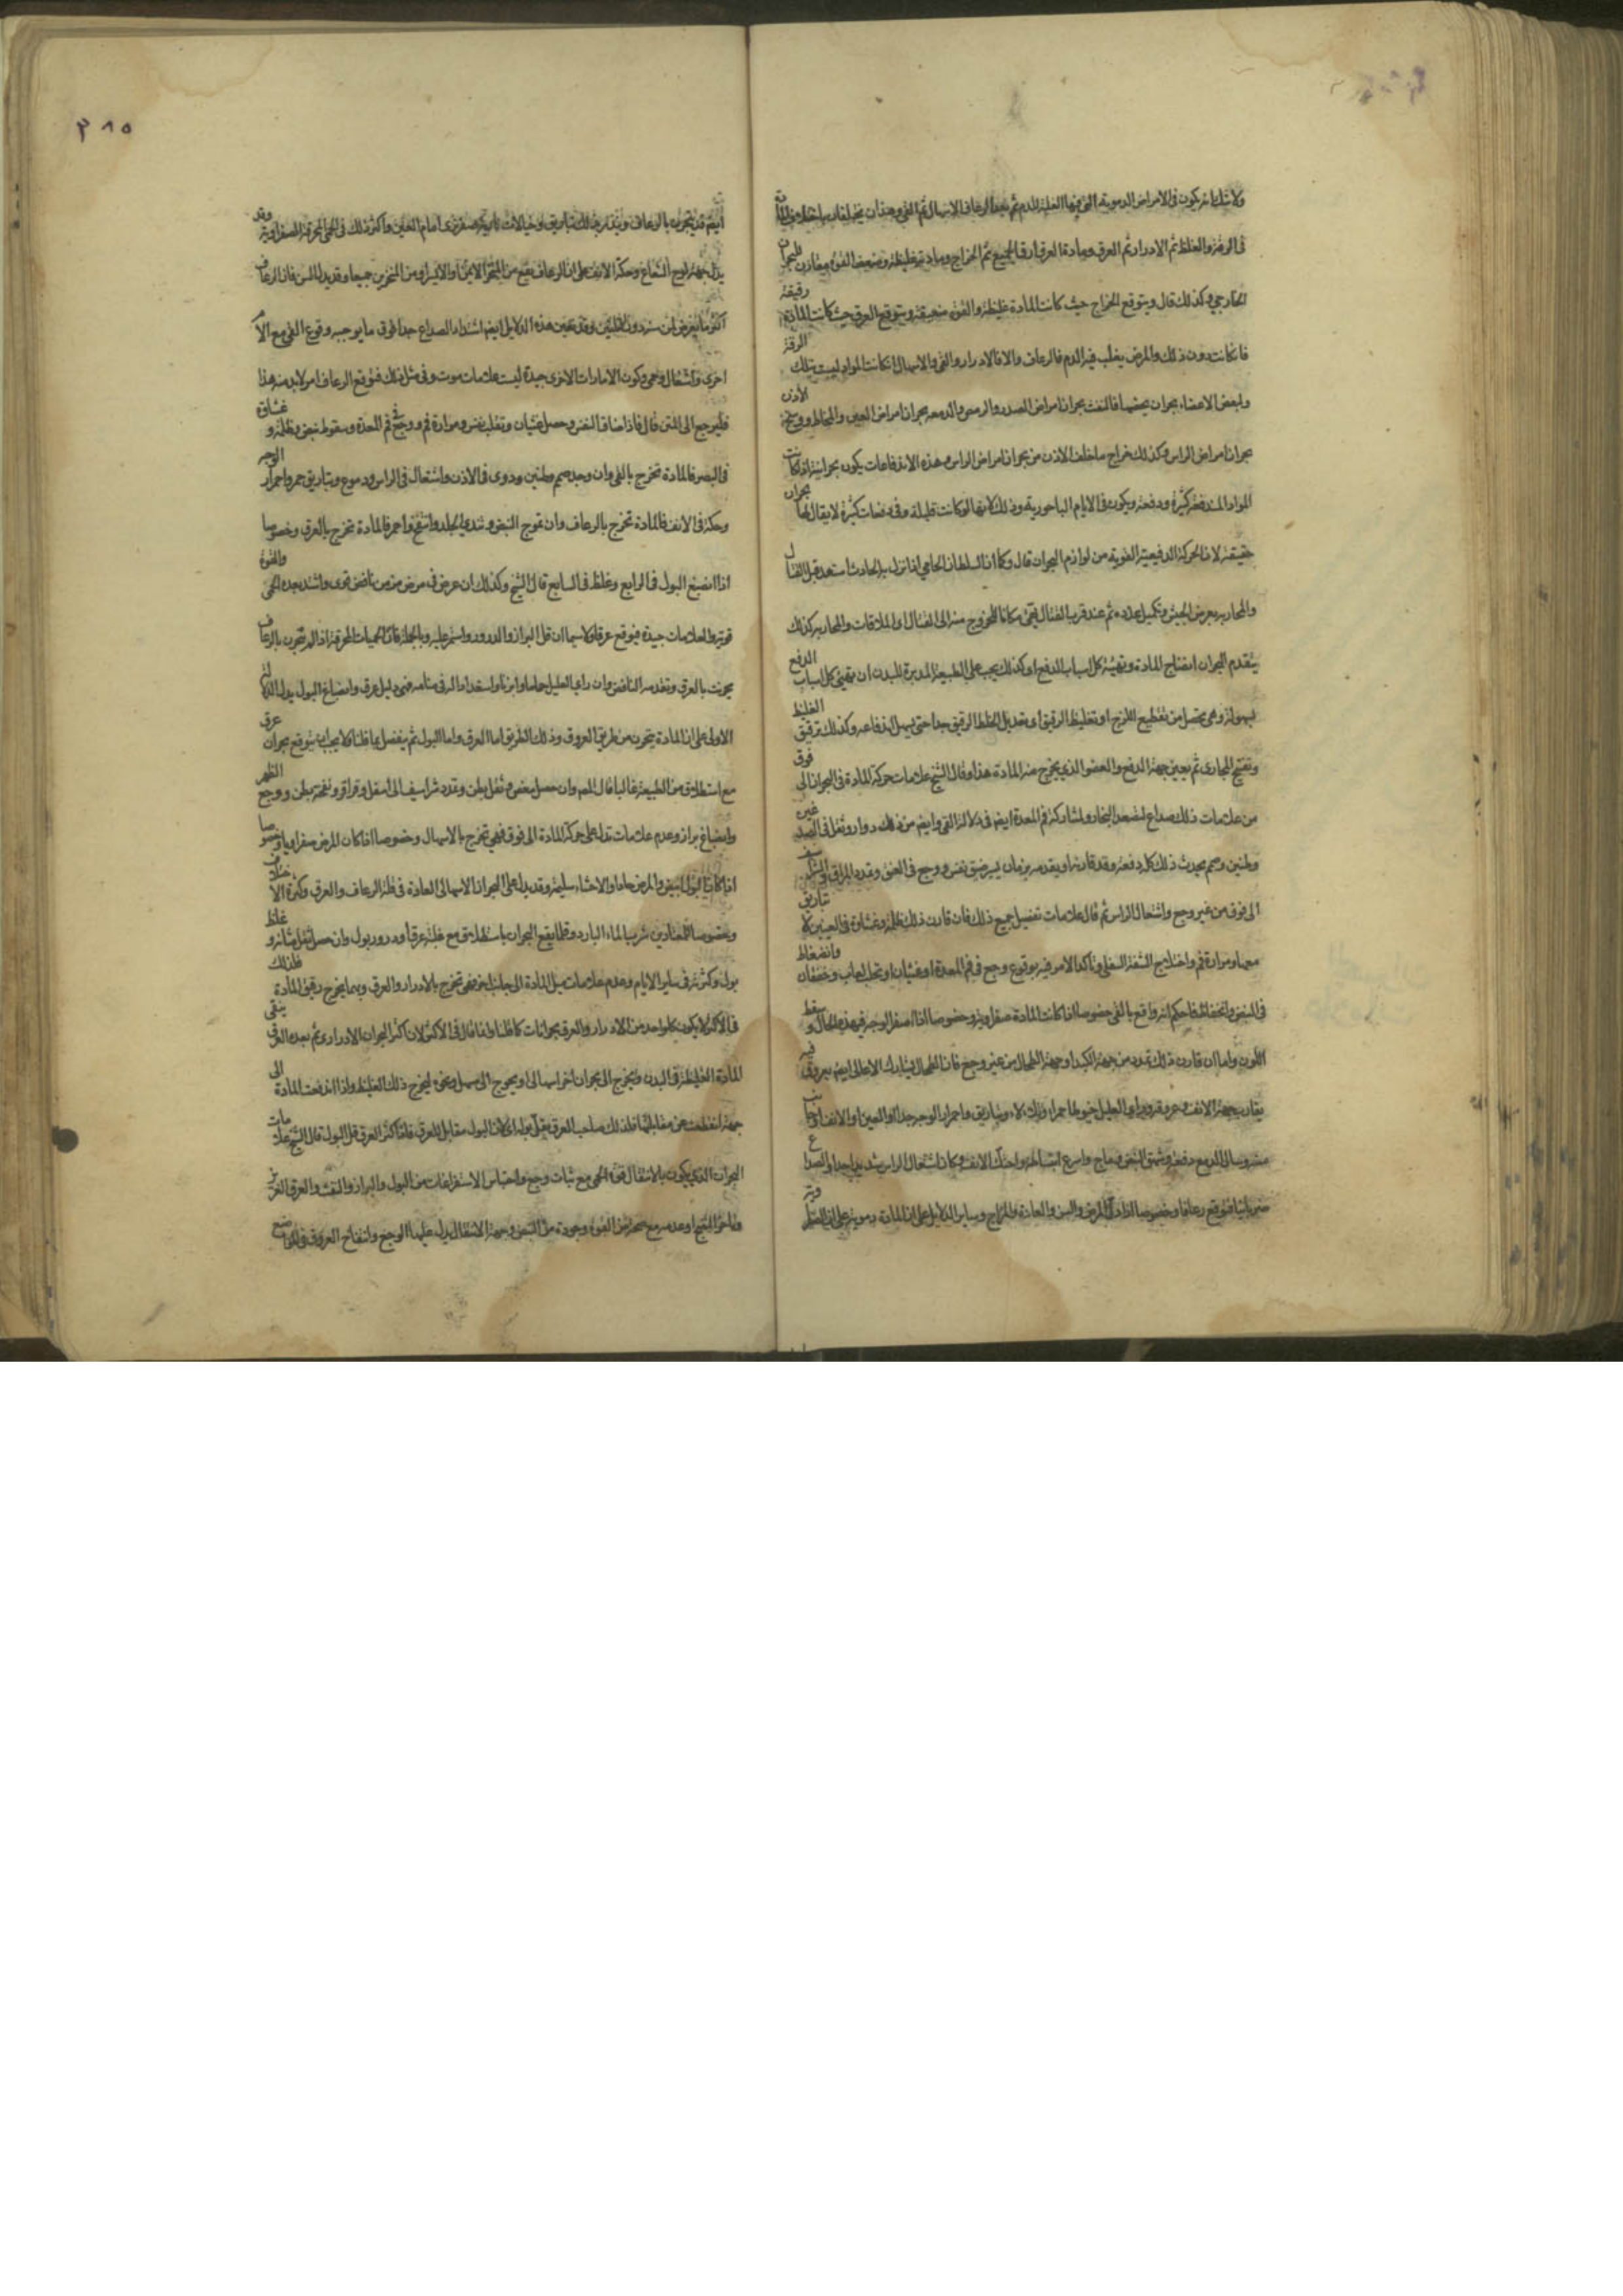 ولا شك انه يكون في الامراض الدموية التي فيها الغلبة للدم ثم بعد الرعاف الاسهال ثم القي وهذان يختلفان باختلاف المادة
في الرقة والغلظ ثم الادرار ثم العرق ومادة العرق ارق الجميع ثم الخراج ومادته غليظة وضعف القوة مقارن للبحران
الخارجي وكذلك قال ويتوقع الخراج حيث كانت المادة غليظة والقوة ضعيفة ويتوقع العرق حيث كانت المادة رقيقة
فان كانت دون ذلك والمرض يغلب فيه الدم فالرعاف والا فالادرار والقي والاسهال ان كانت المواد ليست بتلك الرقة
ولبعض الاعضاء بحران يخصها فالنفث بحران امراض الصدر والرمص والدمعه بحران امراض العين والمخاط ووسخ الاذن
بحران امراض الراس وكذلك خراج ما خلف الاذن من بحران امراض الراس وهذه الاندفاعات يكون بحرانية اذا كانت
المواد المندفعة كثيرة ودفعة ويكون في الايام الباحورية وذلك لانها لو كانت قليلة وفي دفعات كثيرة لا يقال لها بحران
حقيقة لان الحركة الدفعية القوية من لوازم البحران قال وكما ان السلطان الحامي اذا نزل به الحادث استعد قبل القتال
والمحاربه بعرض الجيش وتكميل عدده ثم عند قرب القتال مكانا للخروج منه الى القتال او الملاقات والمحاربه كذلك
يتقدم البحران انضاج المادة وتهيئة كل اسباب الدفع اى وكذلك يجب على الطبيعة المدبرة للبدن ان تهيئ كل اسباب الدفع
بسهولة وهي تحصل من تقطيع اللزج او تغليظ الرقيق اى تعديل الخلط الرقيق جدا حتى يسهل اندفاعه وكذلك ترقيق الغليظ
وتفتح المجاري ثم يعين جهة الدفع والعضو الذي يخرج منه المادة هذا وقال الشيخ علامات حركة المادة في البحران الى فوق
من علامات ذلك صداع لتصعد البخار ولمشاركة فم المعدة ايضا في دلالة القي وايضا من ذلك دوار وثقل في الصدغين
وطنين وصمم يحدث ذلك كله دفعة وقد قارنه او يقدمه بزمان يسير ضيق نفس ووجع في العنق وتمدد المراق الشراسيف
الى فوق من غير وجع واشتعال الراس ثم قال علامات تفصيل جميع ذلك فان قارن ذلك ظلمة وغشاوة في العينين لا تباريق
معها ومرارة فم واختلاج الشفة السفلى وتاكد الامر فيه بوقوع وجع في فم المعدة او غثيان او تحلب لعاب وخفقان وانضغاط
في النبض وانخفاض فاحكم انه واقع بالقي خصوصا اذا كانت المادة صفراوية وخصوصا اذا اصفر الوجه في هذه الحال وسقط
اللون واما ان قارن ذلك تمدد من جهة الكبد او جهة الطحال من غير وجع فان الطحال يشارك الاعالى ايضا بعروق فيه
يقارب جهة الانف وعروقه وراى العليل خيوطا حمراء وتلالاء وتباريق واحمرار الوجه جدا او العين او الانف او جانب
منه وسال الدمع دفعة وشهق النبض وماج واسرع انبساطه واحتك الانف وكان اشتعال الراس شديدا جدا والصداع
ضربانيا فتوقع رعافا وخصوصا اذا دل المرض والسن والعادة والمزاج وساير الدلايل على ان المادة دموية على ان الصفراوية
ايضا قد تبحرن بالرعاف وينذر بذلك تباريق وخيالات نارية صفر ترى امام العين واكثر ذلك في الحمى المحرقة الصفراوية وقد
يدل جهة لوح الشعاع وحكة الانف على ان الرعاف يقع من المنخر الايمن او الايسر او من المنخرين جميعا وقد يدل السن فان الرعاف
اكثر ما يعرض لمن سنه دون الثلثين وقد يعين هذه الدلايل ايضا اشتداد الصداع جدا فوق ما يوجبه وقوع القي مع الام
اخرى واشتعال وحمى ويكون الامارات الاخرى جيدة ليست علامات موت وفي مثل ذلك فتوقع الرعاف امر لا بد منه هذا
فليرجع الى المتن قال فاذا ضاق النفس وحصل غثيان وتقلب نفس ومرارة فم ووجع في فم المعدة وسقوط نبض وظلمة وغشاوة
في البصر فالمادة تخرج بالقي وان وجد صمم وطنين ودوى في الاذن واشتعال في الراس ودموع وتباريق حمر واحمرار الوجه
وحكة في الانف فالمادة تخرج بالرعاف وان تموج النبض وتندى الجلد وانتفخ واحمر فالمادة تخرج بالعرق وخصوصا
اذا انصبغ البول في الرابع وغلظ في السابع قال الشيخ وكذلك ان عرض في مرض مزمن نافض قوى واشتد بعده الحمى والقوة
قوية والعلامات جيدة فتوقع عرقا ولا سيما ان قل البراز والدرور واستمر عليه وبالجملة فان الحميات المحرقة اذا لم تبحرن بالرعاف
بحرنت بالعرق وتقدمه النافض وان راى العليل حماما وابزنا واستعدادا له في منامه فهي دليل عرق وانصباغ البول يدل الدلالة
الاولى على ان المادة يتحرن من طريق العروق وذلك الطريق اما العرق واما البول ثم يفصل بما قلنا ولا يجب ان يتوقع بحران عرق
مع استطلاق من الطبيعة غالبا قال المص وان حصل مغص وثقل بطن وتمدد شراسيف الى اسفل وقراقر ونفخة بطن ووجع الظهر
وانصباغ براز وعدم علامات تدل على حركة المادة الى فوق فهي تخرج بالاسهال وخصوصا اذا كان المرض صفراويا وخصوصا
اذا كان البول ابيض والمرض حادا والاحشاء سليمة وقد يدل على البحران الاسهالى العادة في قلة الرعاف والعرق وكثرة الاختلاف
وخصوصا للمعتادين شرب الماء البارد وقلما يقع البحران باستطلاق مع غلبة عرق او درور بول وان حصل ثقل مثانة وغلظ
بول وكثرته في ساير الايام وعدم علامات ميل المادة الى جانب اخر فهي تخرج بالادرار والعرق وبهما يخرج رقيق المادة فلذلك
في الاكثر لا يكون كل واحد من الادرار والعرق بحرانات كاملة وانما قال في الاكثر لان اكثر البحران الادرارى ثم بعده العرقى يبقى
المادة الغليظة في البدن ويحوج الى بحران اخر اسهالى او يحوج الى مسهل وبحي ليخرج ذلك الغليظ واذا اندفعت المادة الى
جهة انقطعت عن مقابلها فلذلك صاحب العرق يقل بوله اى لان البول مقابل للعرق فلما كثر العرق قل البول قال الشيخ علامات
البحران الذي يكون بالانتقال قوة الحمى مع ثبات وجع واحتباس الاستفراغات من البول والبراز والنفث والعرق الغزير
وتاخر النضج او عدمه مع صحة من القوة وجودة من النبض وجهة الانتقال يدل عليها الوجع وانتفاخ العروق في المواضع
٣٨٥